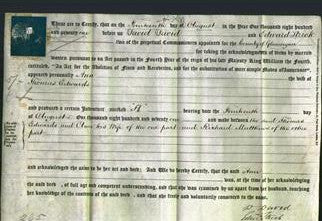 These are to Certify, that on the Fourteenth day of August in the Year One thousand eight hundred
and seventy one before us David David and Edward
two of the perpetual Commissioners appointed for the County of Glamorgan
for taking the acknowledgments of deeds by married
women, pursuant to an Act passed in the Fourth Year of the reign of his late Majesty King William the Fourth,
"An Act for the Abolition of Fines and Recoveries, and for the substitution of more simple Modes of Assurance"
appeared personally Ann the wife of
Thomas Edwards
and produced a certain Indenture marked A bearing date the Fourteenth day
of August One thousand eight hundred and seventy one and made between the said Thomas
Edwards and Ann his Wife of the one part and Richard Matthews of the other
part
and acknowledged the same to be her act and deed: And We do hereby Certify, that the said Ann
was, at the time of her acknowledging
the said deed, of full age and competent understanding, and that she was examined by us apart from her husband, touching
her knowledge of the contents of the said deed, and that she freely and voluntarily consented to the same.
D. David